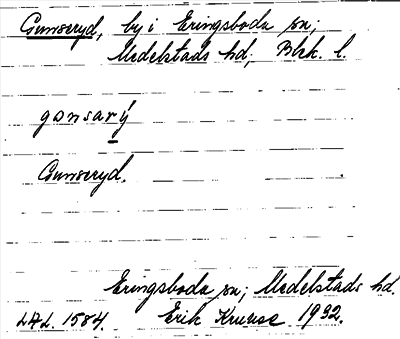 Gunseryd, by i Eringsboda sn;
Medelstads hd, Blek. l.
gonsarý
Gunseryd.
Eringsboda sn; Medelstads hd.
LAL. 1584. Erik Kruuse 1932.